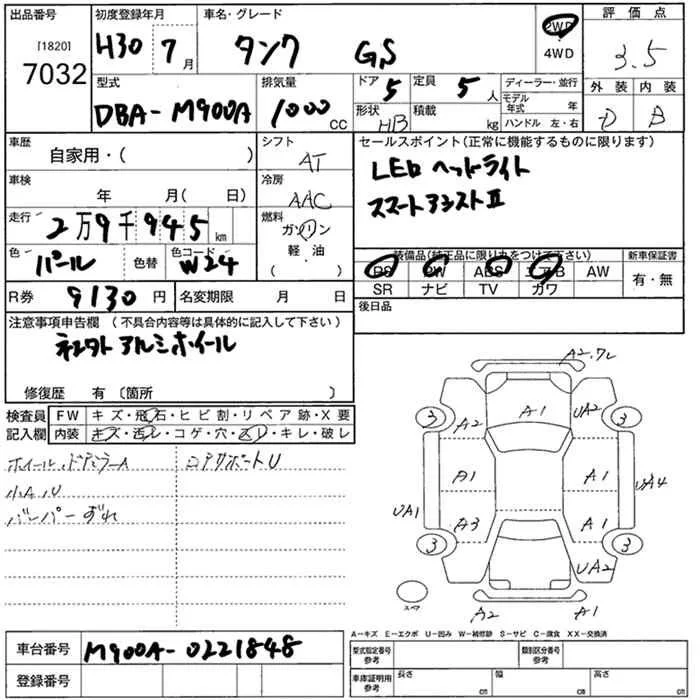 出品番号 初度登録年月 車名・グレード 評価点
[1820]
7032
H30 年 7 月 タンク GS 2WD 4WD 3.5
型式 排気量 ドア 定員 ディーラー・並行 外装 内装
DBA-M900A 1000 CC 5 5 人 モデル年式 年 D B
形状 HB 積載 kg ハンドル 左・右
車歴 シフト セールスポイント(正常に機能するものに限ります)
自家用・( ) AT
LEDヘッドライト
車検 冷房
年 月( 日) AAC
スマートアシストⅡ
走行 燃料
2万9千945 km ガソリン
軽・油
( )
色 色替 色コード
パール W24
装備品(純正品に限り丸をつけて下さい) 新車保証書
PS PW ABS エアB AW 有・無
SR ナビ TV カワ
R券 9130 円 名変期限 月 日 後日品
注意事項申告欄 (不具合内容等は具体的に記入して下さい)
ネクスト アルミホイール
修復歴 有 〔箇所 〕
検査員 FW キズ・飛石・ヒビ割・リペア跡・X要
記入欄 内装 キズ・汚レ・コゲ・穴・スレ・キレ・破レ
ホイール、ドアミラーA コアサポートU
小A、U
バンパーずれ
A2.ワレ
A2 A1 UA2
3 3
A1 A1
UA1 UA4
A3 A1
3 3
UA2
スペア
A2 A1
A-キズ E-エクボ U-凹み W-補修跡 S-サビ C-腐食 XX-交換済
車台番号 M900A-0221848
登録番号
型式指定番号 参考 類別区分番号 参考
車庫証明用 参考 長さ cm 幅 cm 高さ cm